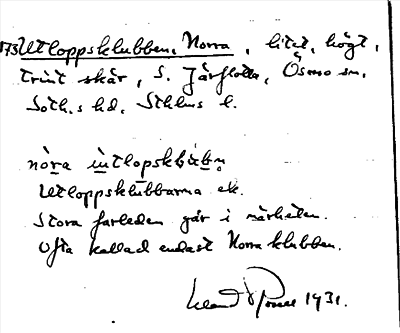 173 Utloppsklubben, Norra, litet, högt,
trint skär, S. Järflotta, Ösmo sn,
Soth.s hd, Sthlms l.
nò̱ra ù̱tlopsklu̇be̱n
Utloppsklubbarna ek.
Stora farleden går i närheten.
Ofta kallad endast Norra klubben.
1931.